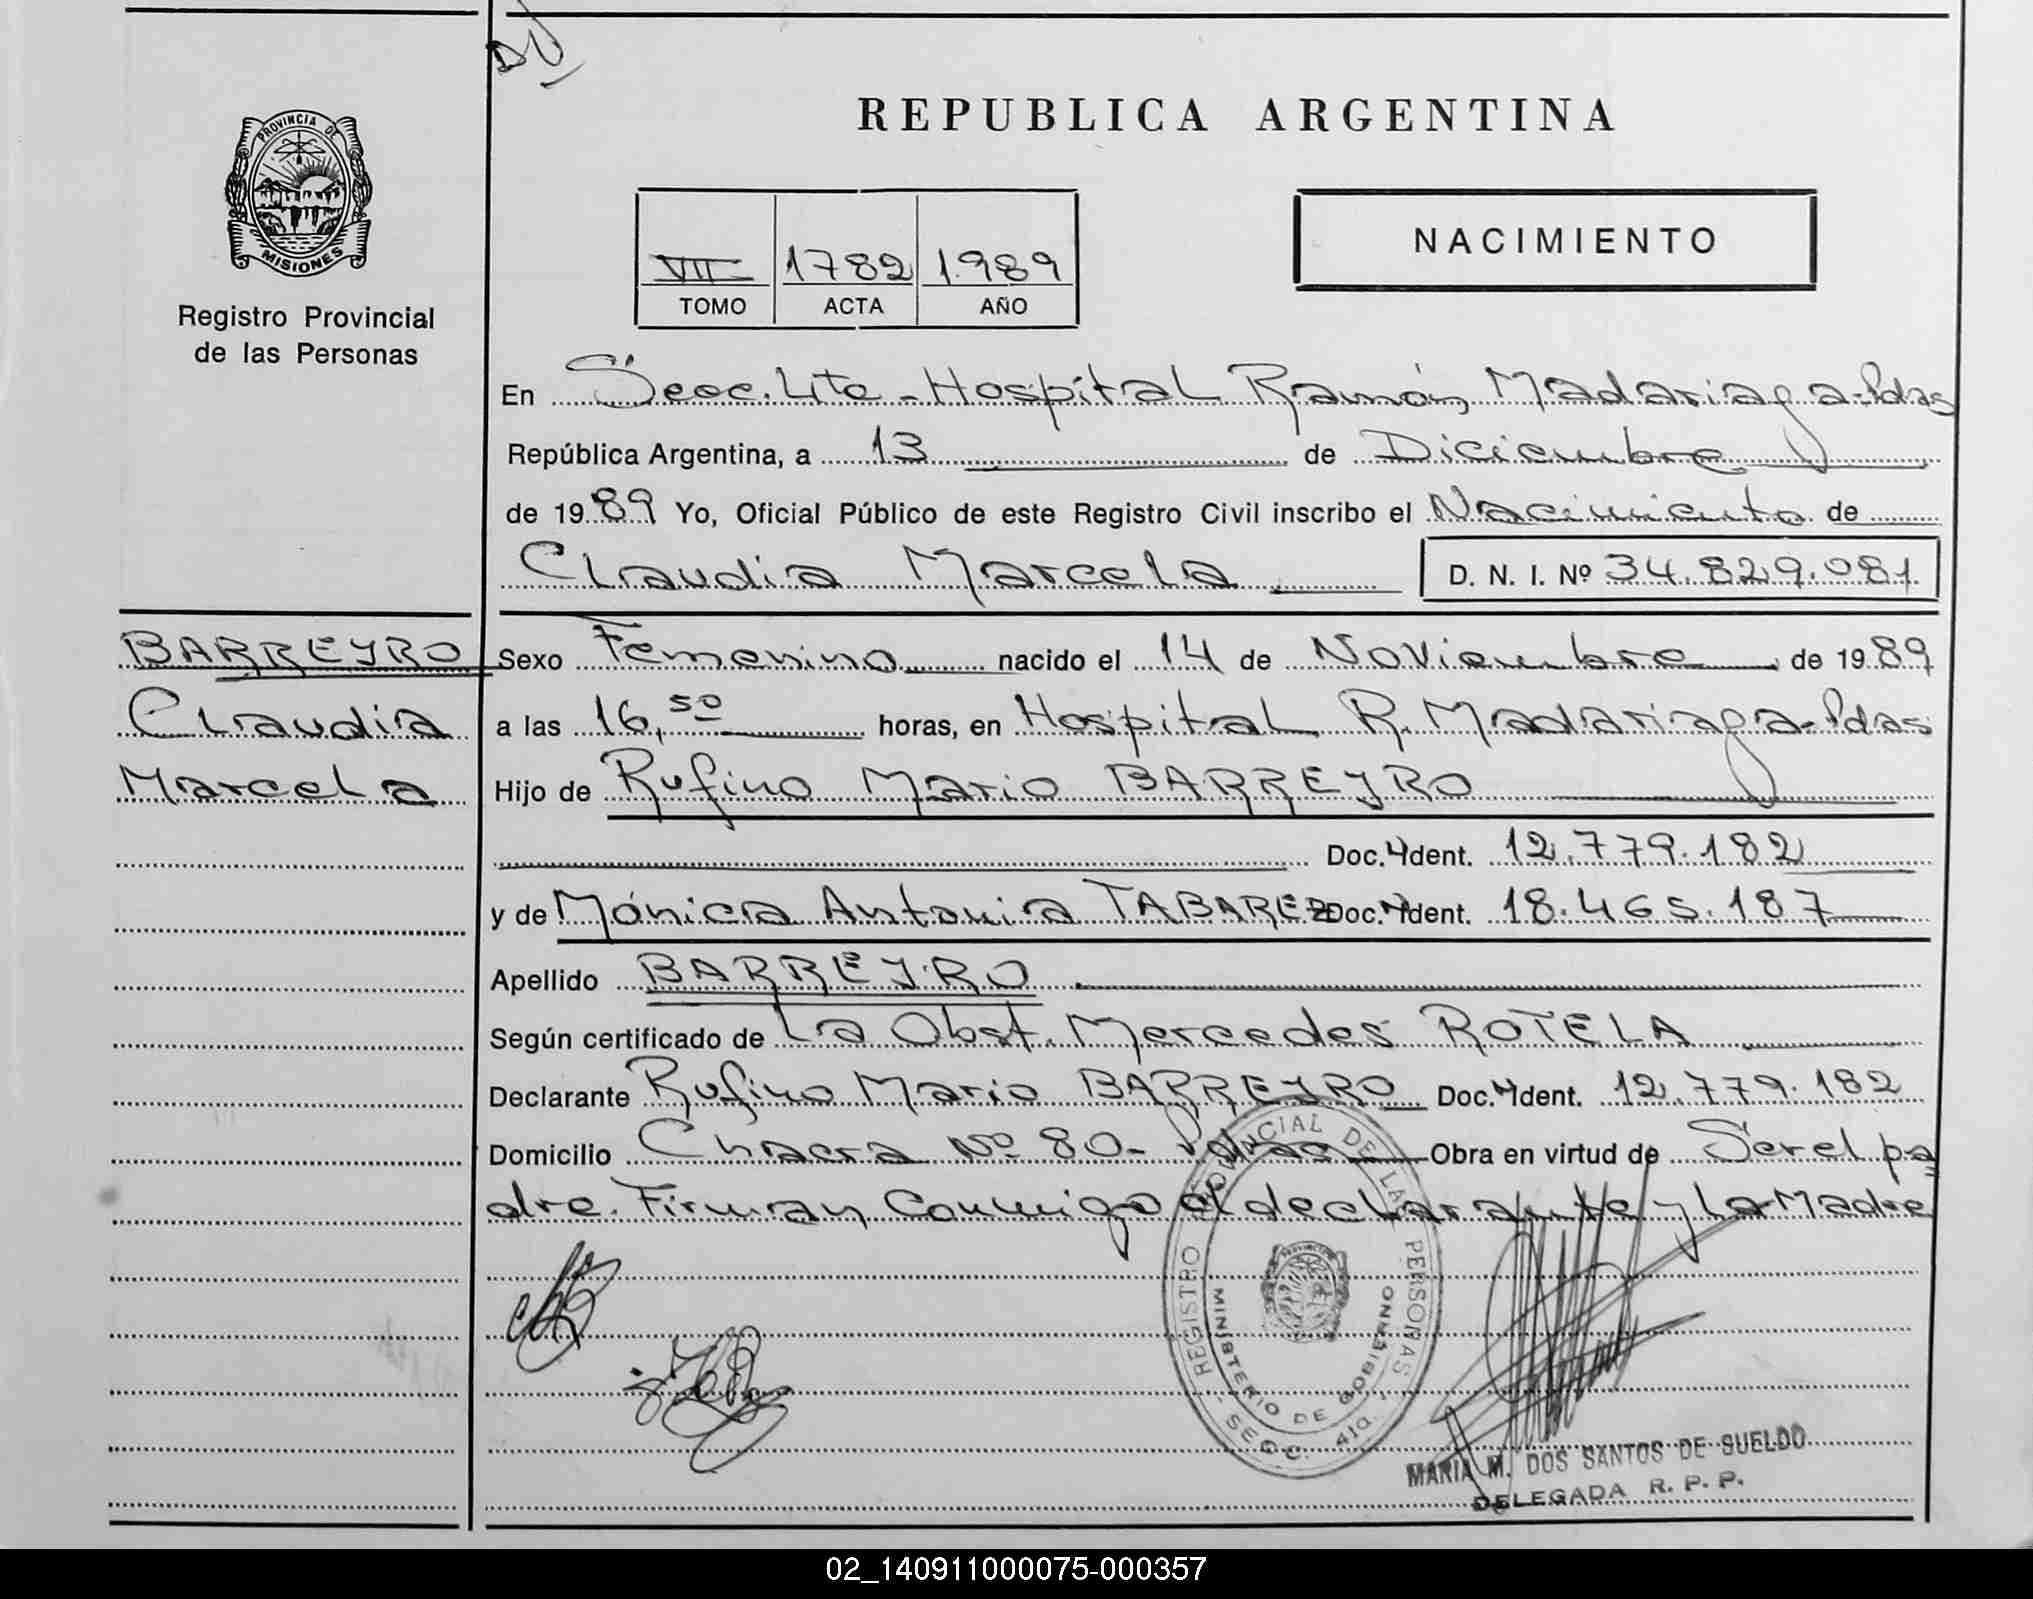 DU
PROVINCIA DE
MISIONES
Registro Provincial
de las Personas
REPUBLICA ARGENTINA
NACIMIENTO
VII 1782 1.989
TOMO ACTA AÑO
En Secc. 4ta - Hospital Ramón Madariaga - Pdas
República Argentina, a 13 de Diciembre
de 1989 Yo, Oficial Público de este Registro Civil inscribo el Nacimiento de
Claudia Marcela D. N. I. Nº 34.829.081
BARREYRO
Claudia
Marcela
Sexo Femenino nacido el 14 de Noviembre de 1989
a las 16,50 horas, en Hospital R. Madariaga - Pdas
Hijo de Rufino Mario BARREYRO
Doc. Ident. 12.779.182
y de Mónica Antonia TABAREZ Doc. Ident. 18.465.187
Apellido BARREYRO
Según certificado de La Obst. Mercedes ROTELA
Declarante Rufino Mario BARREYRO Doc. Ident. 12.779.182
Domicilio Chacra Nº 80 - Pdas Obra en virtud de Ser el pa
dre. Firman Conmigo el declarante y La Madre
REGISTRO PROVINCIAL DE LAS PERSONAS
MINISTERIO DE GOBIERNO
SECC. 4ta.
MARIA M. DOS SANTOS DE SUELDO
DELEGADA R. P. P.
02_140911000075-000357